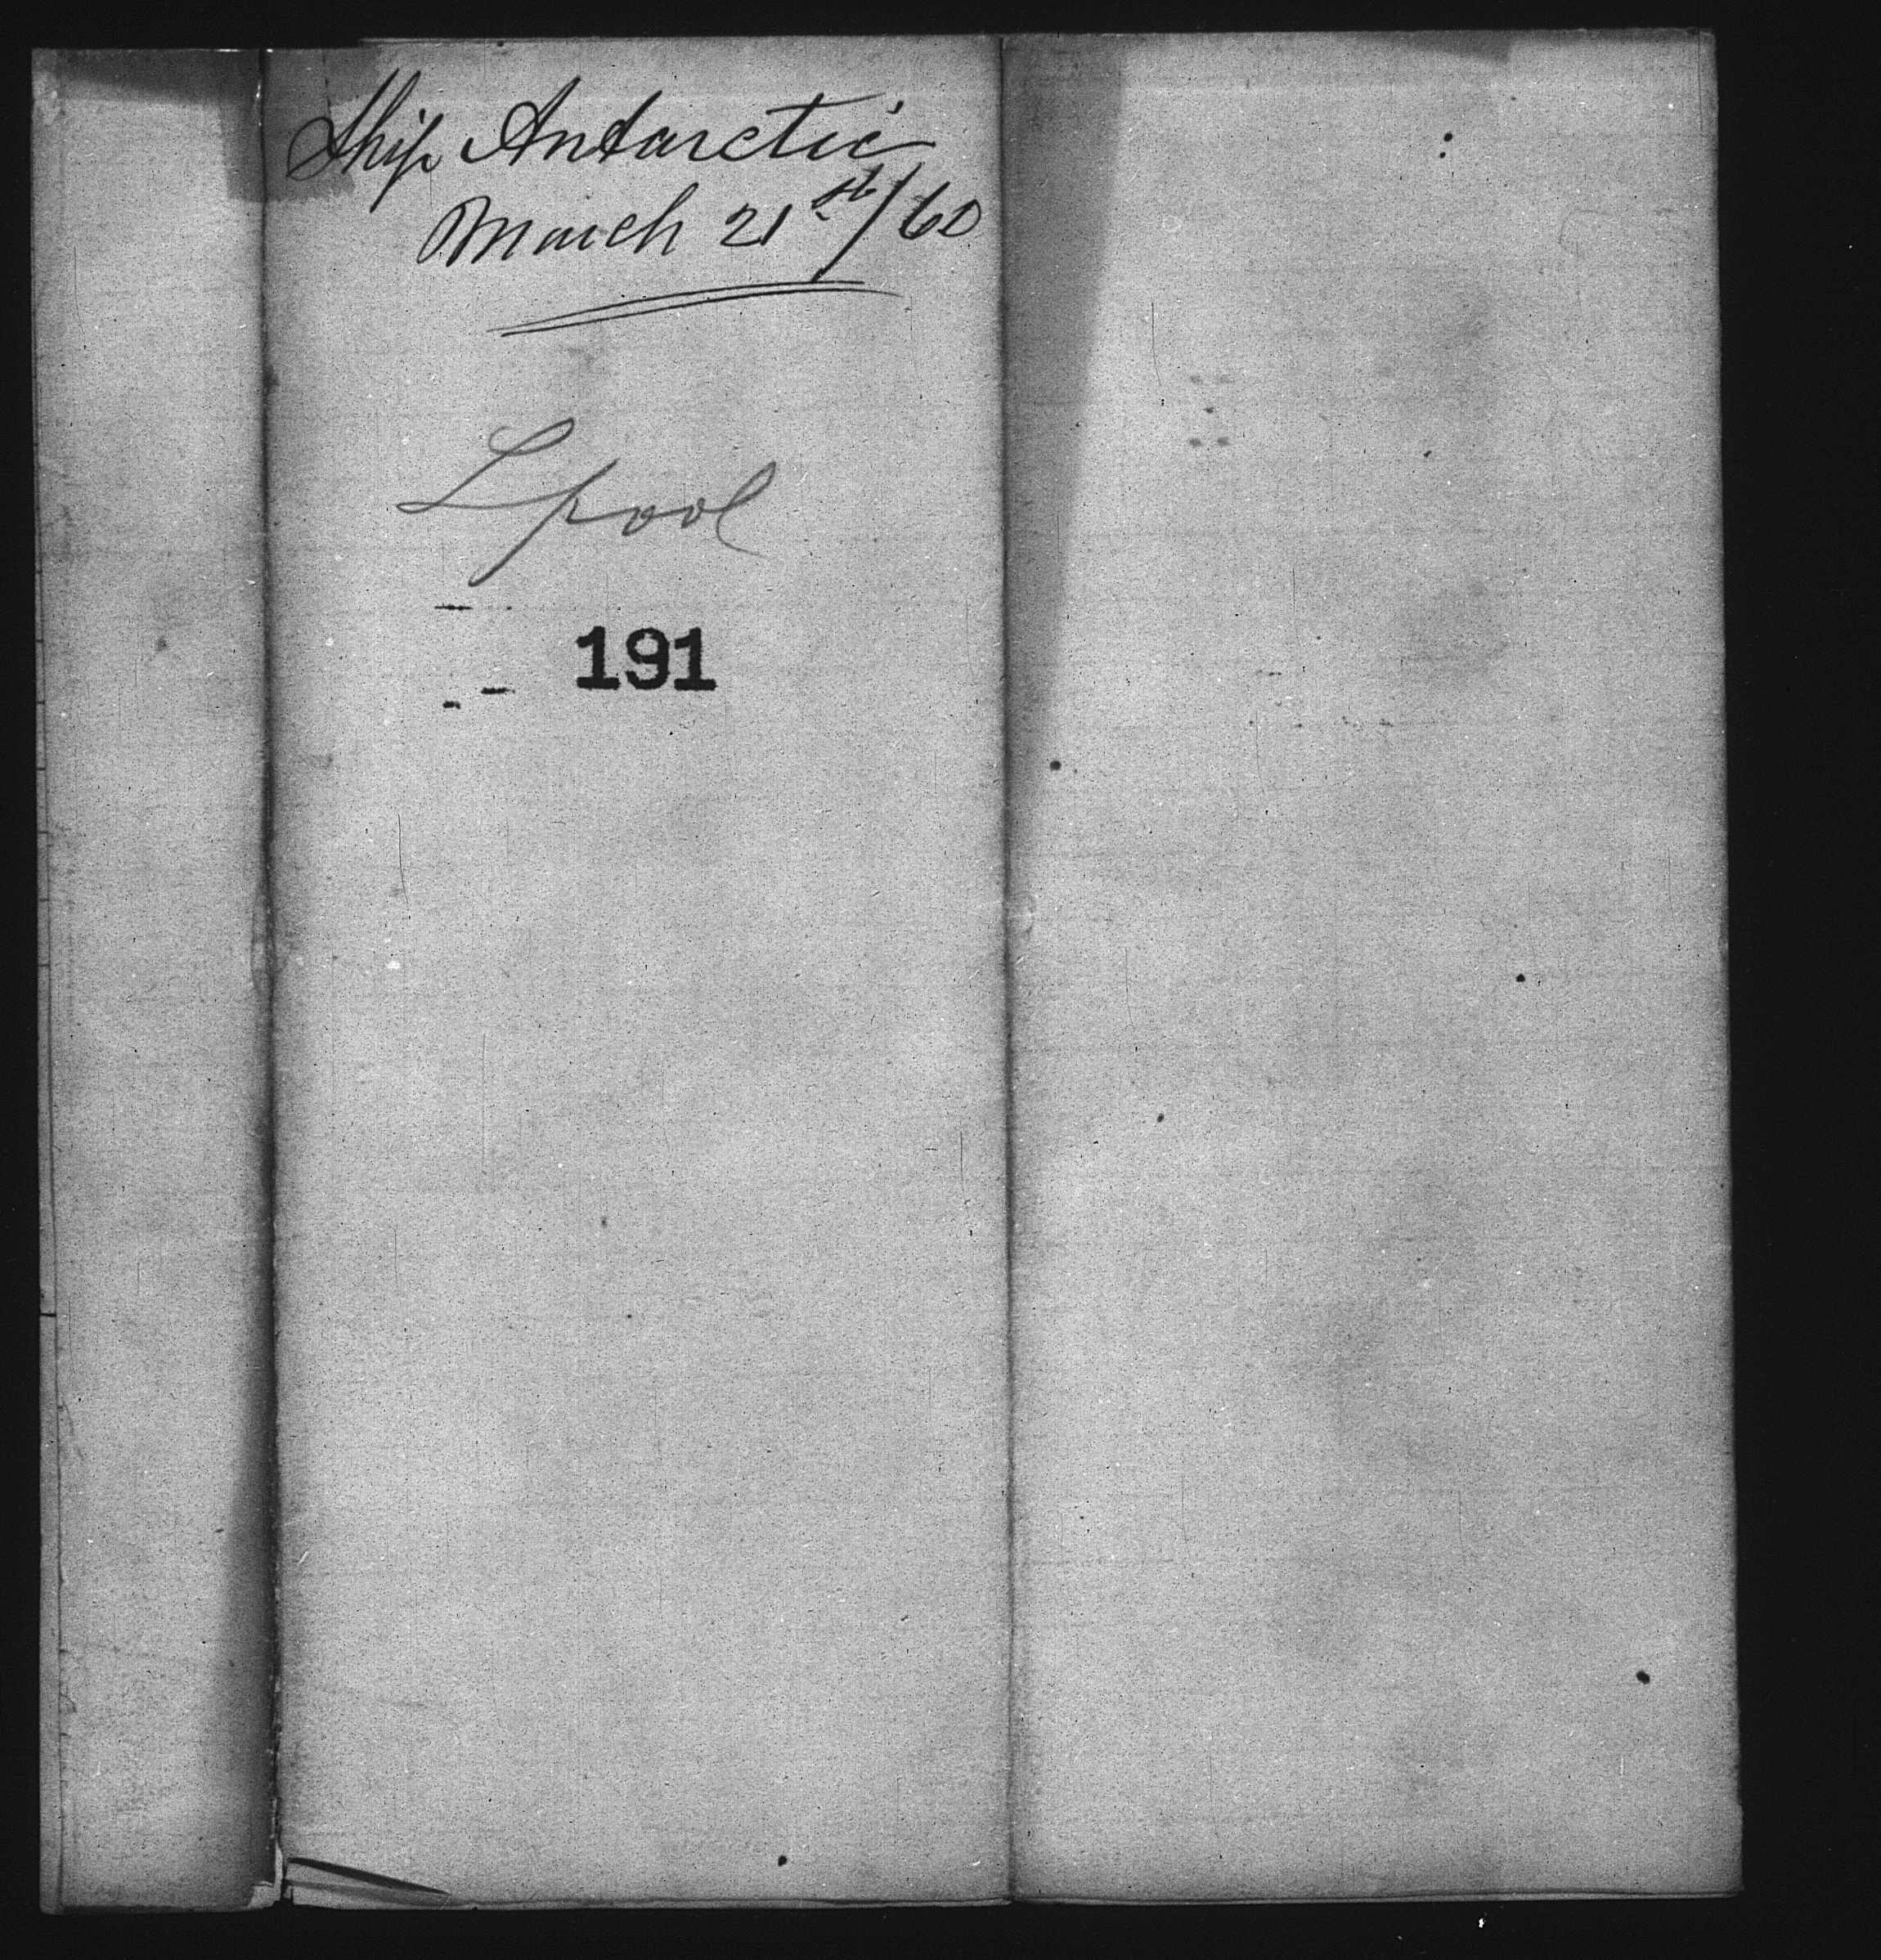 Ship Antarctic
March 21st/60
Lpool
191